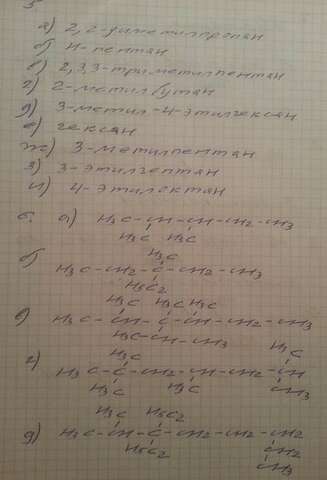 5
а) 2,2-диметилпропан
б) н-пентан
в) 2,3,3-триметилпентан
г) 2-метилбутан
д) 3-метил-4-этилгексан
е) гексан
ж) 3-метилпентан
з) 3-этилгептан
и) 4-этилоктан
6. а) H3C-CH-CH-CH2-CH3
H3C H3C
H3C
б) H3C-CH2-C-CH2-CH3
H5C2
H3C H3C H3C
в) H3C-CH-C-CH-CH2-CH3
H3C-CH-CH3
H3C H3C
г) H3C-C-CH2-CH-CH2-CH
H3C H3C CH3
H3C H5C2
д) H3C-CH-C-CH2-CH2-CH2
H5C2 CH2
CH3